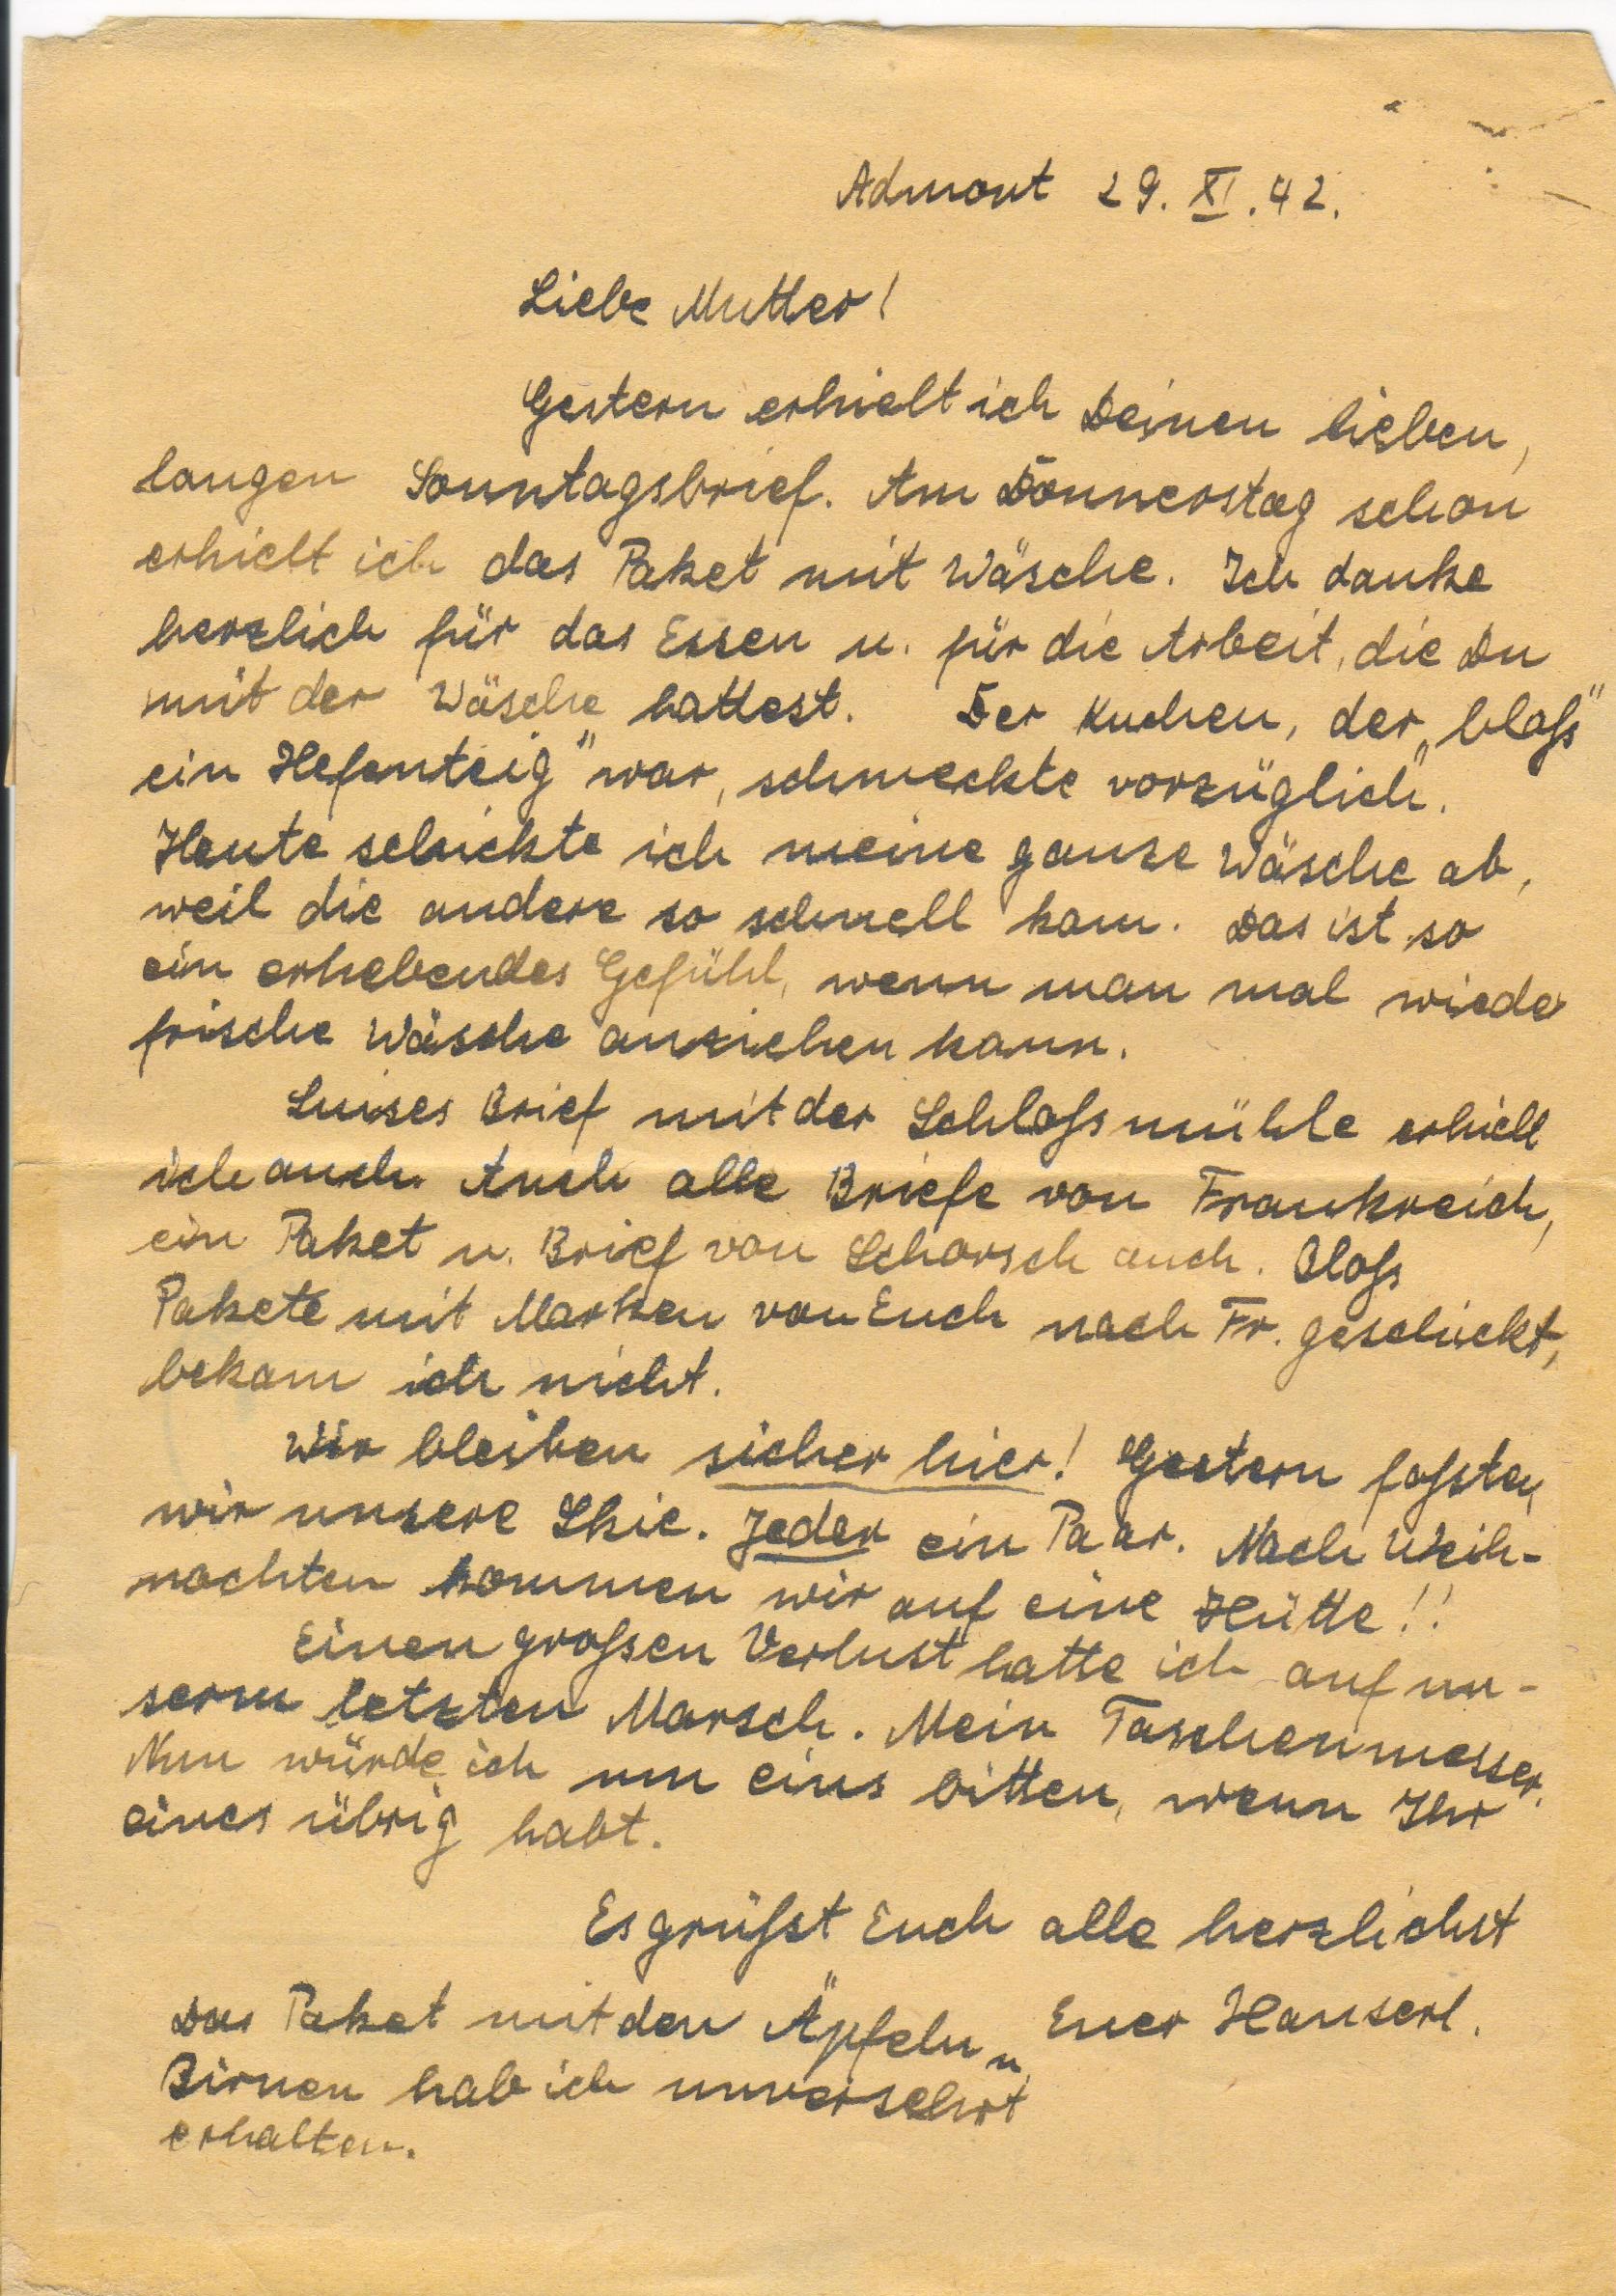 Admont 29. XI. 42.
Liebe Mutter!
Gestern erhielt ich Deinen lieben,
langen Sonntagsbrief. Am Donnerstag schon
erhielt ich das Paket mit Wäsche. Ich danke
herzlich für das Essen u. für die Arbeit, die Du
mit der Wäsche hattest. Der Kuchen, der „bloß"
ein Hefenteig" war, schmeckte vorzüglich.
Heute schickte ich meine ganze Wäsche ab,
weil die andere so schnell kam. Das ist so
ein erhebendes Gefühl, wenn man mal wieder
frische Wäsche anziehen kann.
Luises Brief mit der Schloßmühle erhielt
ich auch. Auch alle Briefe von Frankreich,
ein Paket u. Brief von Schorsch auch. Bloß
Pakete mit Marken von Euch nach Fr. geschickt,
bekam ich nicht.
Wir bleiben sicher hier! Gestern faßten
wir unsere Skie. Jeder ein Paar. Nach Weih-
nachten kommen wir auf eine Hütte!!
Einen großen Verlust hatte ich auf un-
serm letzten Marsch. Mein Taschenmesser.
Nun würde ich um eins bitten, wenn Ihr
eines übrig habt.
Es grüßt Euch alle herzlichst
Euer Hanserl.
Das Paket mit den Äpfeln u.
Birnen hab ich unversehrt
erhalten.